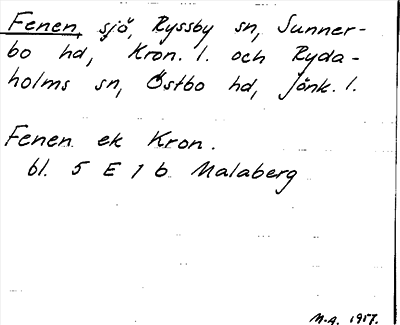 Fenen, sjö, Ryssby sn, Sunner-
bo hd, Kron. l. och Ryda-
holms sn, Östbo hd, Jönk. l.
Fenen ek Kron.
bl. 5 E 1 b Malaberg
M.A. 1957.